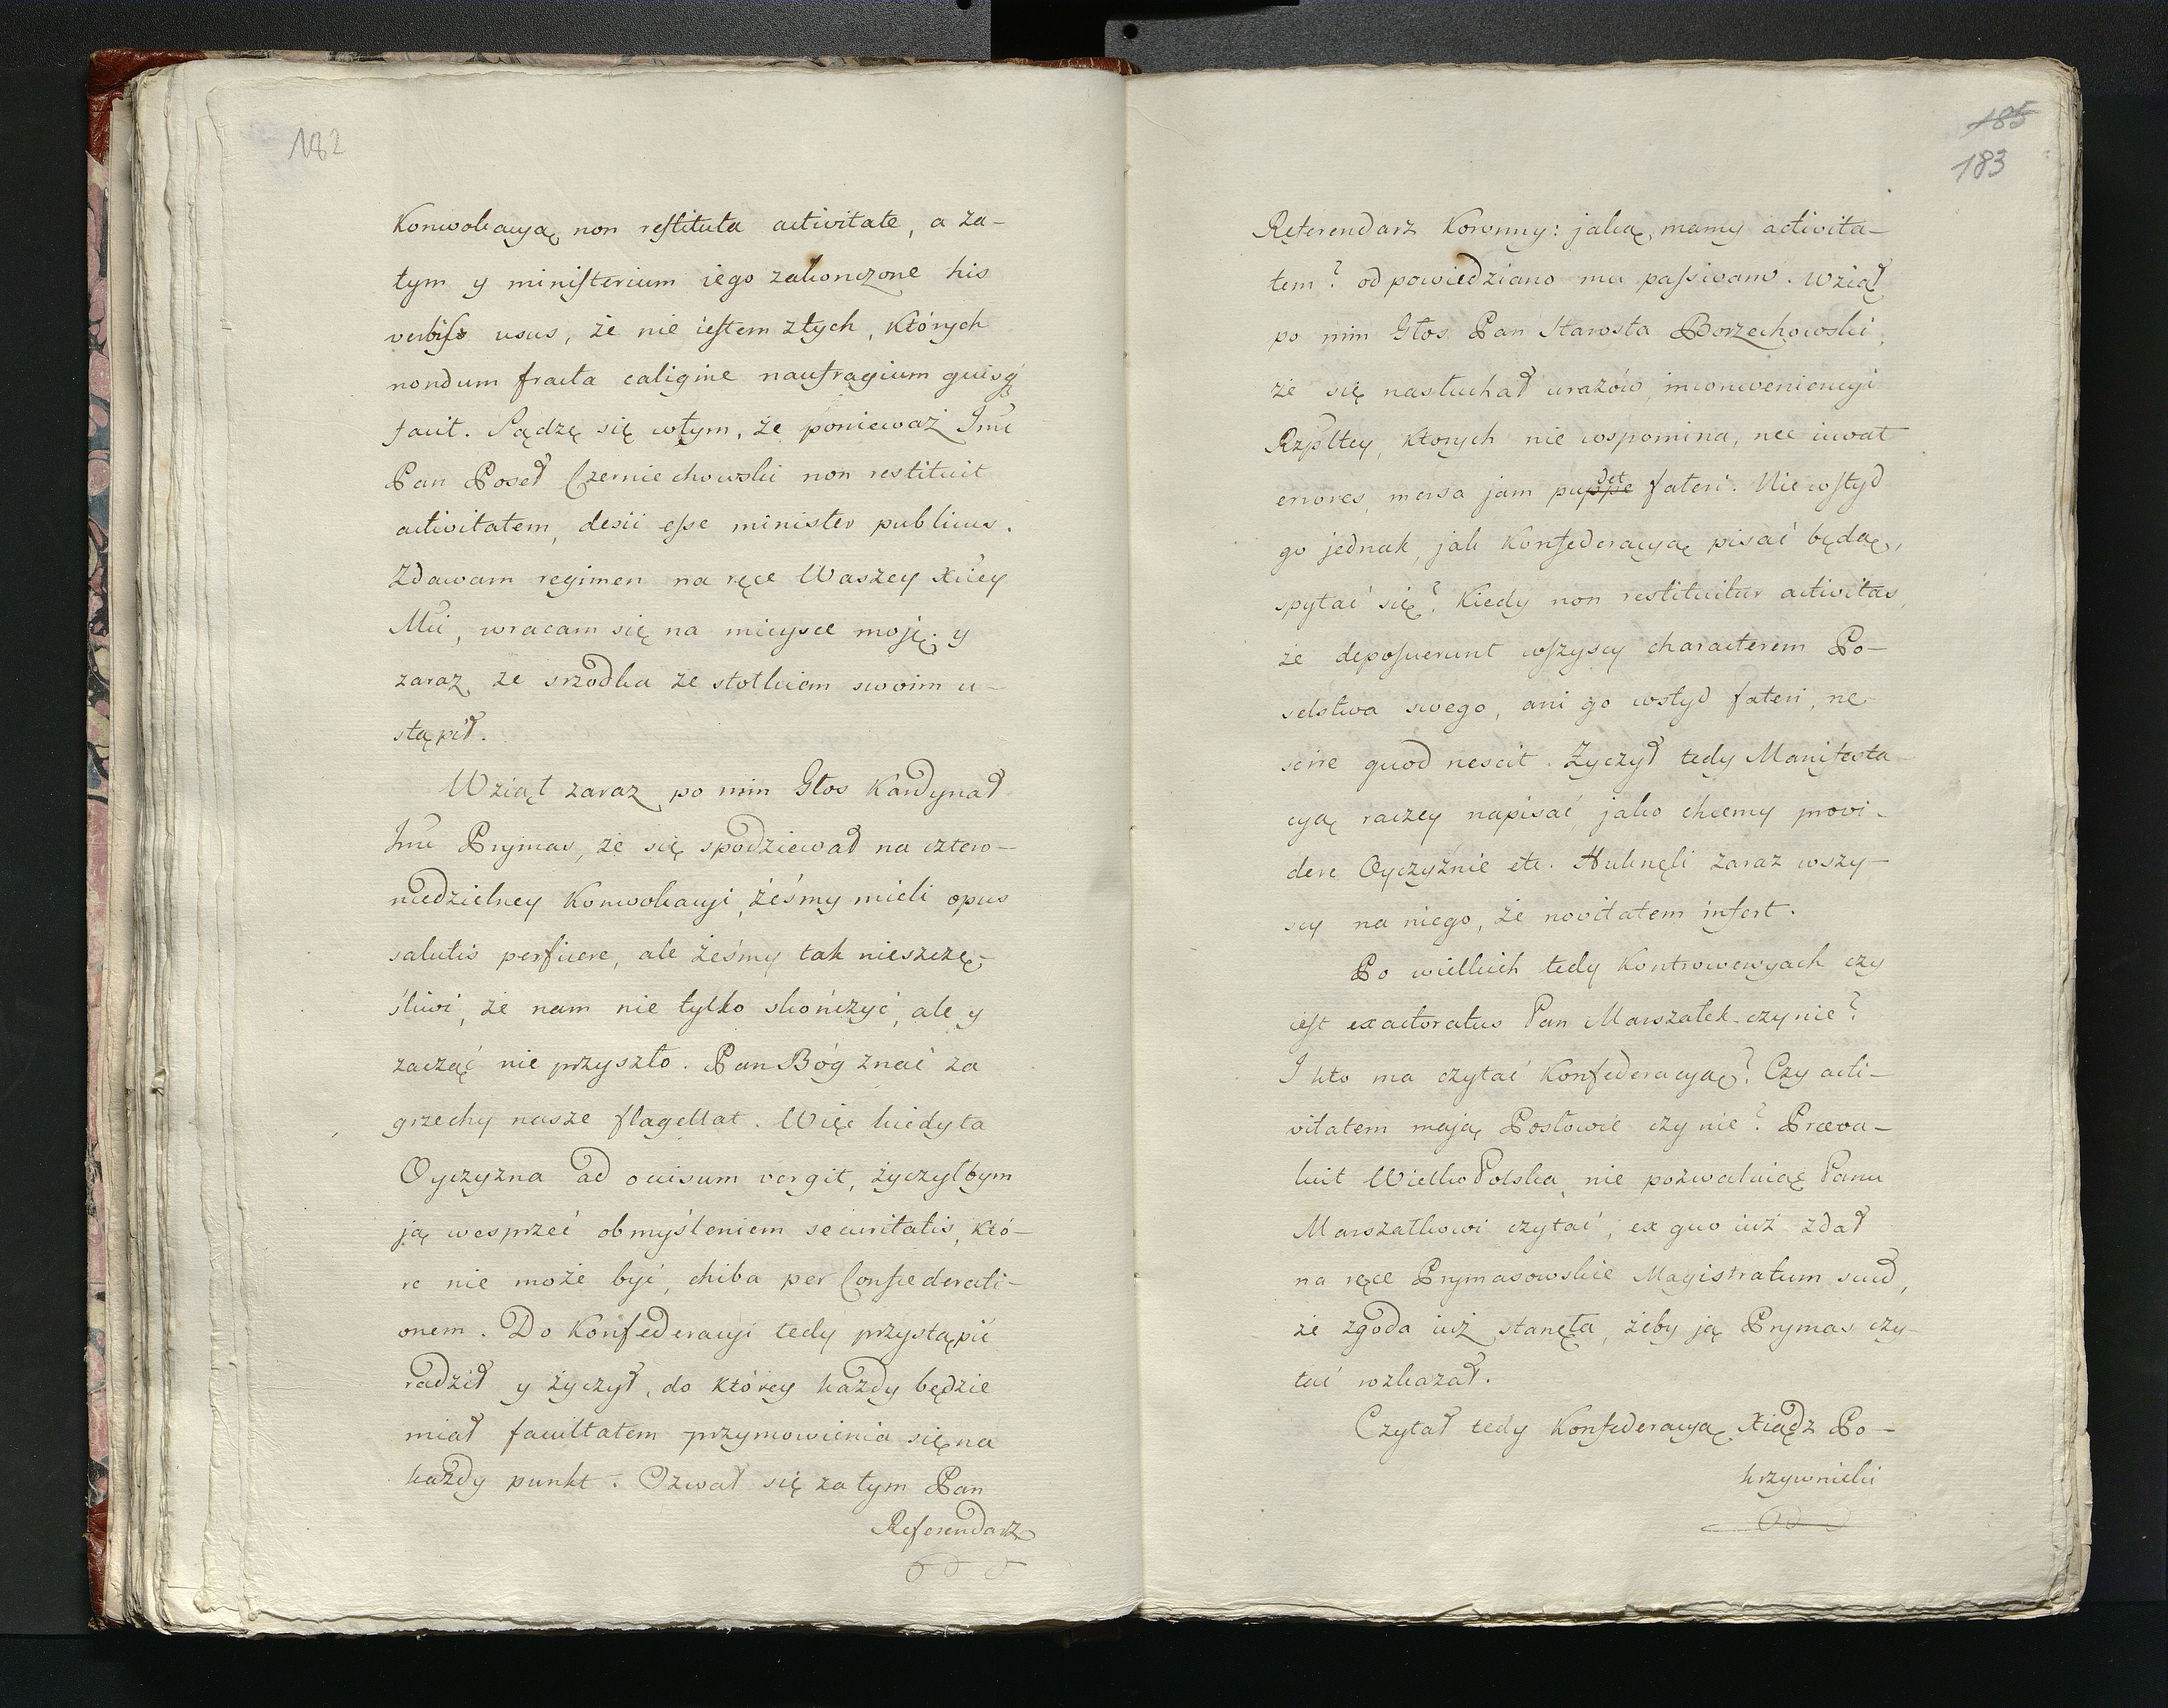 182
Konwokacyą, non restituta activitate, a za-
tym y ministerium iego zakonczone his
verbis usus, że nie iestem złych, których
nondum fracta caligine naufragium quisq
facit. Sądzę się wtym, że ponieważ Imć
Pan Poseł Czerniechowski non restituit
activitatem, desii esse minister publicus.
Zdawam regimen na ręce Waszey Xcey
Mci, wracam się na mieysce moję; y
zaraz ze srzodka ze stołkiem swoim u-
stąpił.
Wziął zaraz po nim Głos Kardynał
Imć Prymas, że się spodziewał na cztero-
niedzielney Konwokacyi, żeśmy mieli opus
salutis perficere, ale żeśmy tak nieszczę-
śliwi, że nam nie tylko skończyć, ale y
zacząć nie przyszło. Pan Bóg znać za
grzechy nasze flagellat. Więc kiedy ta
Oyczyzna ad occisum vergit, życzyłbym
ją wesprzeć obmyśleniem securitatis, któ-
re nie może być, chiba per Confœderati-
onem. Do Konfederacyi tedy przystąpić
radził y życzył, do którey każdy będzie
miał facultatem przymowienia się na
każdy punkt. Ozwał się zatym Pan
Referendarz
185
183
Referendarz Koronny: jaką mamy activita-
tem? odpowiedziano mu passivam. Wziął
po nim Głos Pan Starosta Borzechowski,
że się nasłuchał urazów, inconveniencyi
Rzpltey, ktorych nie wspomina, nec iuvat
errores, mersa jam puppe det fateri. Nie wstyd
go jednak, jak Konfederacyą pisać będą,
spytać się? Kiedy non restituitur activitas,
że deposuerunt wszyscy characterem Po-
selstwa swego, ani go wstyd fateri, ne-
scire quod nescit. Zyczył tedy Manifesta-
cyą raczey napisać, jako chcemy provi-
dere Oyczyźnie etc. Huknęli zaraz wszy-
scy na niego, że novitatem infert.
Po wielkich tedy Kontrowersyach czy
iest exactoratus Pan Marszałek czy nie?
I kto ma czytać Konfederacyą? Czy acti-
vitatem mają Posłowie czy nie? Præva-
luit Wielko Polska, nie pozwalaiąc Panu
Marszałkowi czytać, ex quo iuż zdał
na ręce Prymasowskie Magistratum suud,
że zgoda iuż stanęła, żeby ją Prymas czy-
tać rozkazał.
Czytał tedy Konfederacyą Xiądz Po-
krzywnicki